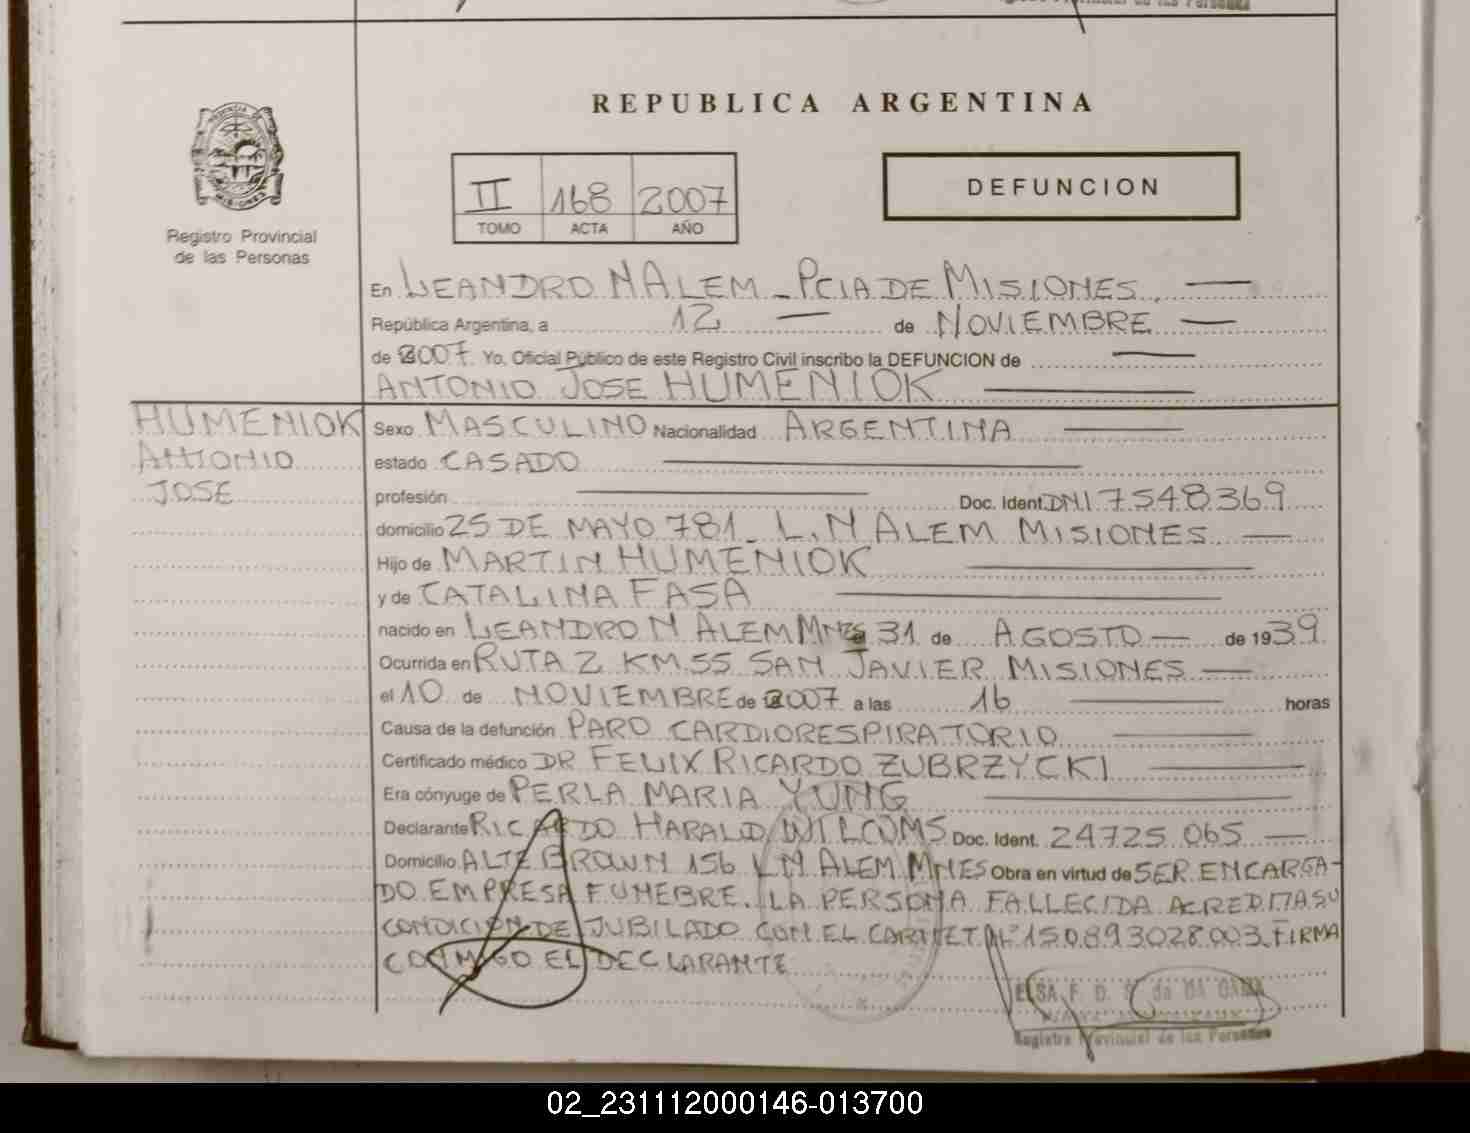 REPUBLICA ARGENTINA
DEFUNCION
II 168 2007
TOMO ACTA AÑO
Registro Provincial
de las Personas
En LEANDRO N ALEM - PCIA DE MISIONES
República Argentina, a 12 de NOVIEMBRE
de 2007. Yo, Oficial Público de este Registro Civil inscribo la DEFUNCION de
ANTONIO JOSE HUMENIOK
HUMENIOK
ANTONIO
JOSE
Sexo MASCULINO Nacionalidad ARGENTINA
estado CASADO
profesión Doc. Ident. DNI 7548369
domicilio 25 DE MAYO 781 - L. N ALEM MISIONES
Hijo de MARTIN HUMENIOK
y de CATALINA FASA
nacido en LEANDRO N ALEM MNES 31 de AGOSTO de 1939
Ocurrida en RUTA 2 KM 55 SAN JAVIER MISIONES
el 10 de NOVIEMBRE de 2007 a las 16 horas
Causa de la defunción PARO CARDIORESPIRATORIO
Certificado médico DR FELIX RICARDO ZUBRZYCKI
Era cónyuge de PERLA MARIA YUNG
Declarante RICARDO HARALD WILCOMS Doc. Ident. 24725.065
Domicilio ALTE BROWN 156 L N ALEM MNES Obra en virtud de SER ENCARGA-
DO EMPRESA FUNEBRE. LA PERSONA FALLECIDA ACREDITA SU
CONDICION DE JUBILADO CON EL CARNET Nº 150893028003. FIRMA
CONMIGO EL DECLARANTE
ELSA F. D. da
Registro Provincial de las Personas
02_231112000146-013700